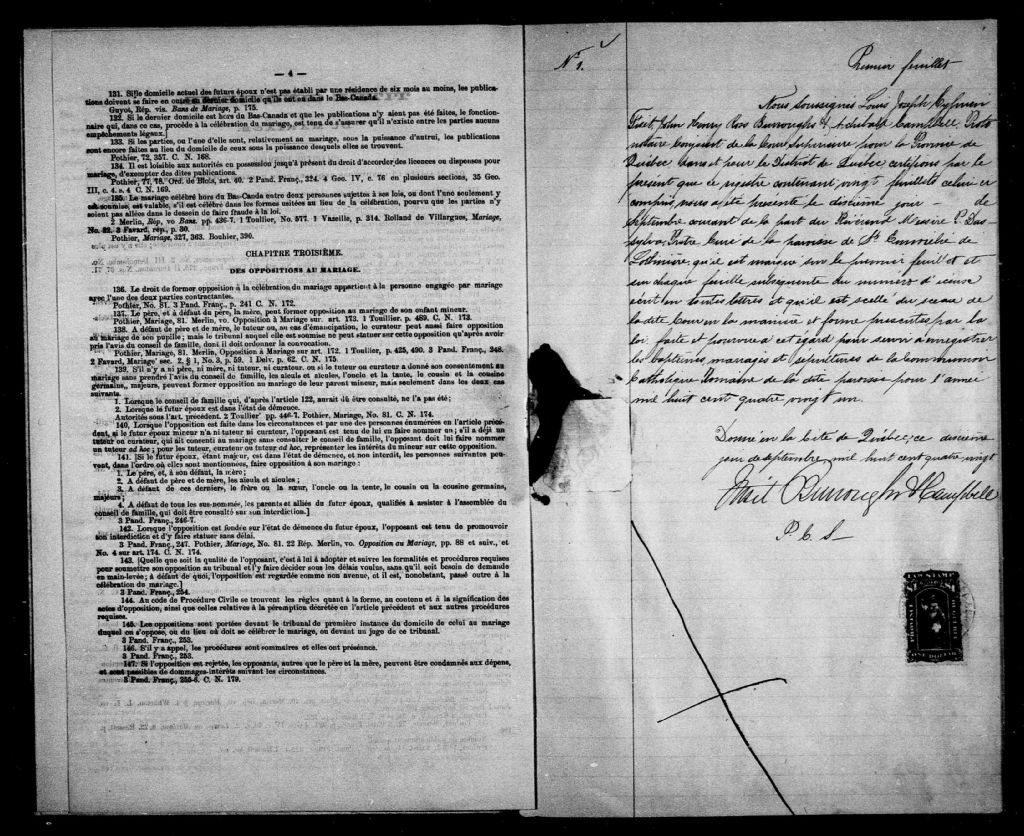 — 4 —
131. Si le domicile actuel des futurs époux n'est pas établi par une résidence de six mois au moins, les publica-
tions doivent se faire en outre au dernier domicile qu'ils ont eu dans le Bas-Canada.
Guyot, Rép. vis. Bans de Mariage, p. 175.
132. Si le dernier domicile est hors du Bas-Canada et que les publications n'y aient pas été faites, le fonction-
naire qui, dans ce cas, procède à la célébration du mariage, est tenu de s'assurer qu'il n'existe entre les parties aucuns
empêchements légaux.]
133. Si les parties, ou l'une d'elle sont, relativement au mariage, sous la puissance d'autrui, les publications
sont encore faites au lieu du domicile de ceux sous la puissance desquels elles se trouvent.
Pothier, 72, 357. C. N. 168.
134. Il est loisible aux autorités en possession jusqu'à présent du droit d'accorder des licences ou dispenses pour
mariage, d'exempter des dites publications.
Pothier, 77, 78. Ord. de Blois, art. 40. 2 Pand. Franç., 324. 4 Geo. IV, c. 76 en plusieurs sections, 35 Geo.
III, c. 4. s. 4 C. N. 169.
135. Le mariage célébré hors du Bas-Canda entre deux personnes sujettes à ses lois, ou dont l'une seulement y
est soumise, est valable, s'il est célébré dans les formes usitées au lieu de la célébration, pourvu que les parties n'y
soient pas allées dans le dessein de faire fraude à la loi.
2 Merlin, Rép, vo Bans. pp. 436-7. 1 Toullier, No. 577. 1 Vazeille, p. 314. Rolland de Villargues, Mariage,
No. 32. 3 Favard, rép., p. 30.
Pothier, Mariage, 327, 363. Bouhier, 390.
CHAPITRE TROISIÈME.
DES OPPOSITIONS AU MARIAGE.
136. Le droit de former opposition à la célébration du mariage appartient à la personne engagée par mariage
avec l'une des deux parties contractantes.
Pothier, No. 81. 3 Pand. Franç., p. 241 C. N. 172.
137. Le père, et à défaut du père, la mère, peut former opposition au mariage de son enfant mineur.
Pothier, Mariage, 81. Merlin, vo. Opposition à Mariage sur. art. 173. 1 Toullier, p. 489. C. N. 173.
138. A défaut de père et de mère, le tuteur ou, au cas d'émancipation, le curateur peut aussi faire opposition
au mariage de son pupille; mais le tribunal auquel elle est soumise ne peut statuer sur cette opposition qu'après avoir
pris l'avis du conseil de famille, dont il doit ordonner la convocation.
Pothier, Mariage, 81. Merlin, Opposition à Mariage sur art. 172. 1 Toullier, p. 425, 490. 3 Pand. Franç., 248.
2 Favard, Mariage' sec. 2, § 1, No. 3, p. 59. 1 Delv. p. 62. C. N. 175
139. S'il n'y a ni père, ni mère, ni tuteur, ni curateur, ou si le tuteur ou curateur a donné son consentement au
mariage sans prendre l'avis du conseil de famille, les aïeuls et aïeules, l'oncle et la tante, le cousin et la cousine
germains, majeurs, peuvent former opposition au mariage de leur parent mineur, mais seulement dans les deux cas
suivants.
1. Lorsque le conseil de famille qui, d'après l'article 122, aurait dû être consulté, ne l'a pas été;
2. Lorsque le futur époux est dans l'état de démence.
Autorités sous l'art. précédent. 2 Toullier' pp. 446-7. Pothier, Mariage, No. 81. C. N. 174.
140. Lorsque l'opposition est faite dans les circonstances et par une des personnes énumérées en l'article précé-
dent, si le futur époux mineur n'a ni tuteur ni curateur, l'opposant est tenu de lui en faire nommer un; s'il a déjà un
tuteur ou curateur, qui ait consenti au mariage sans consulter le conseil de famille, l'opposant doit lui faire nommer
un tuteur ad hoc; pour les tuteur, curateur ou tuteur ad hoc, représenter les intérêts du mineur sur cette opposition.
141. [Si le futur époux, étant majeur, est dans l'état de démence, et non interdit, les personnes suivantes peu-
vent, dans l'ordre où elles sont mentionnées, faire opposition à son mariage:
1. Le père, et, à son défaut, la mère;
2. A défaut de père et de mère, les aïeuls et aïeules;
3. A défaut de ces derniers, le frère ou la sœur, l'oncle ou la tante, le cousin ou la cousine germains,
majeurs;
4. A défaut de tous les sus-nommés, les parents et alliés du futur époux, qualifiés à assister à l'assemblée du
conseil de famille, qui doit être consulté sur son interdiction.]
3 Pand. Franç., 246-7.
142. Lorsque l'opposition est fondée sur l'état de démence du futur époux, l'opposant est tenu de promouvoir
son interdiction et d'y faire statuer sans délai.
3 Pand. Franç., 247. Pothier, Mariage, No. 81. 22 Rép. Merlin, vo. Opposition au Mariage, pp. 88 et suiv., et
No. 4 sur art. 174. C. N. 174.
143. [Quelle que soit la qualité de l'opposant, c'est à lui à adopter et suivre les formalités et procédures requises
pour soumettre son opposition au tribunal et l'y faire décider sous les délais voulus, sans qu'il soit besoin de demande
en main-levée; à défaut de quoi, l'opposition est regardée comme non avenue, et il est, nonobstant, passé outre à la
célébration du mariage.]
3 Pand. Franç., 254.
144. Au code de Procédure Civile se trouvent les règles quant à la forme, au contenu et à la signification des
actes d'opposition, ainsi que celles relatives à la péremption décrétée en l'article précédent et aux autres procédures
requises.
145. Les oppositions sont portées devant le tribunal de première instance du domicile de celui au mariage
duquel on s'oppose, ou du lieu où doit se célébrer le mariage, ou devant un juge de ce tribunal.
3 Pand. Franç., 253.
146. S'il y a appel, les procédures sont sommaires et elles ont préséance.
3 Pand. Franç., 253.
147. Si l'opposition est rejetée, les opposants, autres que le père et la mère, peuvent être condamnés aux dépens,
et sont passibles de dommages-intérêts suivant les circonstances.
3 Pand. Franç., 255-6. C. N. 179.
No 1.
Premier feuillet
Nous soussignés Louis Joseph Cyprien
Fiset, John Henry Ross Burroughs & Archibald Campbell, Proto
notaire Conjoint de la Cour Supérieure pour la Province de
Québec dans et pour le District de Québec certifions par le
présent que ce registre contenant vingt feuillets celui-ci
compris, nous a été présenté le dixième jour — de
Septembre courant de la part du Révérend Messire P. Das
sylva, Prêtre Curé de la paroisse de St Emmélie de
Lotbinière, qu'il est marqué sur le premier feuillet et
sur chaque feuille subséquente du numéro d'icelui
écrit en toutes lettres et qu'il est scellé du sceau de
la dite Cour en la manière et forme prescrites par la
loi, faite et pourvue à cet égard pour servir à enregistrer
les baptêmes, mariages et sépultures de la Communion
Catholique Romaine de la dite paroisse pour l'année
mil huit cent quatre vingt un.
Donné en la Cité de Québec, ce dixième
jour de septembre mil huit cent quatre vingt
Fiset Burroughs & Campbell
P. C. S.
LAW STAMP
PROVINCE
ONE DOLLAR